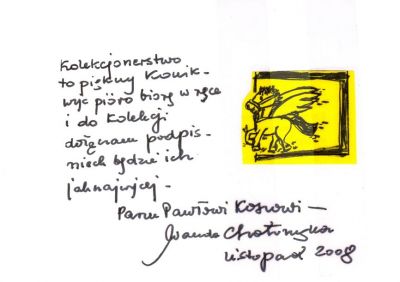 Kolekcjonerstwo
to piękny konik -
więc pióro biorę w ręce
i do kolekcji
dołączam podpis -
niech będzie ich
jak najwięcej -
Panu Pawłowi Kosowi -
Wanda Chotomska
listopad 2008